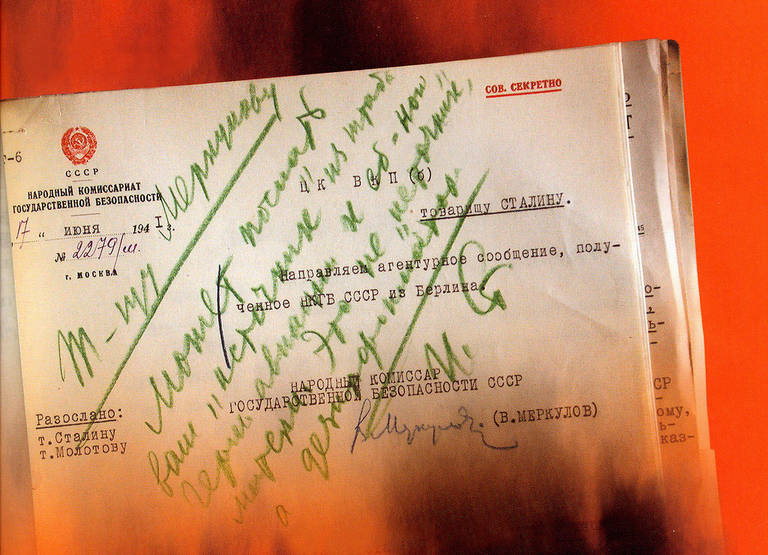 СОВ. СЕКРЕТНО
СССР
НАРОДНЫЙ КОМИССАРИАТ
ГОСУДАРСТВЕННОЙ БЕЗОПАСНОСТИ
17 " июня 1941 г.
№ 2279/м.
г. МОСКВА
Ц К В К П (б)
товарищу СТАЛИНУ.
Направляем агентурное сообщение, полу-
ченное НКГБ СССР из Берлина.
НАРОДНЫЙ КОМИССАР
ГОСУДАРСТВЕННОЙ БЕЗОПАСНОСТИ СССР
(В.МЕРКУЛОВ)
Разослано:
т.Сталину
т.Молотову
Т-щу Меркулову
Может послать
ваш "источник" из штаба
герм. авиации к
Это не "источник",
а дезинформатор.
И. Ст